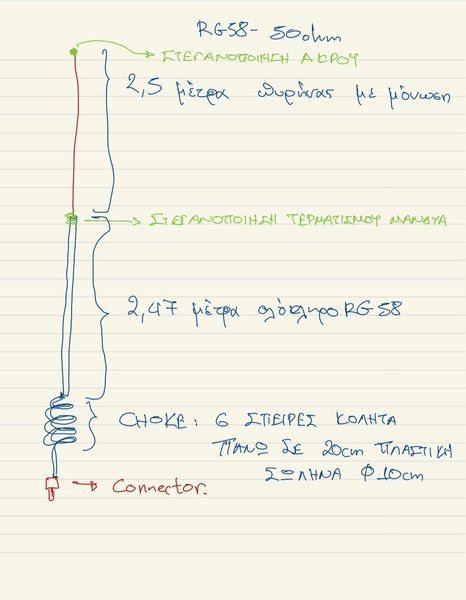 RG58- 50ohm
ΣΤΕΓΑΝΟΠΟΙΗΣΗ ΑΚΡΟΥ
2,5 μέτρα πυρήνας με μόνωση
ΣΤΕΓΑΝΟΠΟΙΗΣΗ ΤΕΡΜΑΤΙΣΜΟΥ ΜΑΝΔΥΑ
2,47 μέτρα ολόκληρο RG58
CHOKE: 6 ΣΠΕΙΡΕΣ ΚΟΛΗΤΑ
ΠΑΝΩ ΣΕ 20cm ΠΛΑΣΤΙΚΗ
ΣΩΛΗΝΑ Φ10cm
Connector.